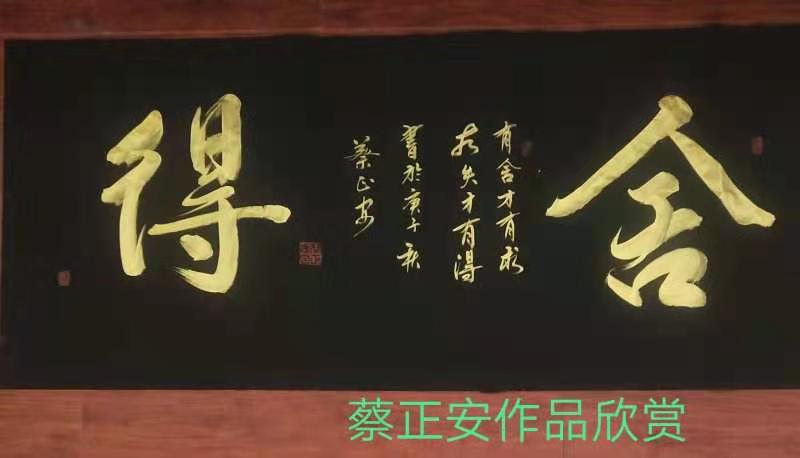 舍
有舍才有求
有失才有得
書於庚子秋
蔡正安
得
蔡正安作品欣赏